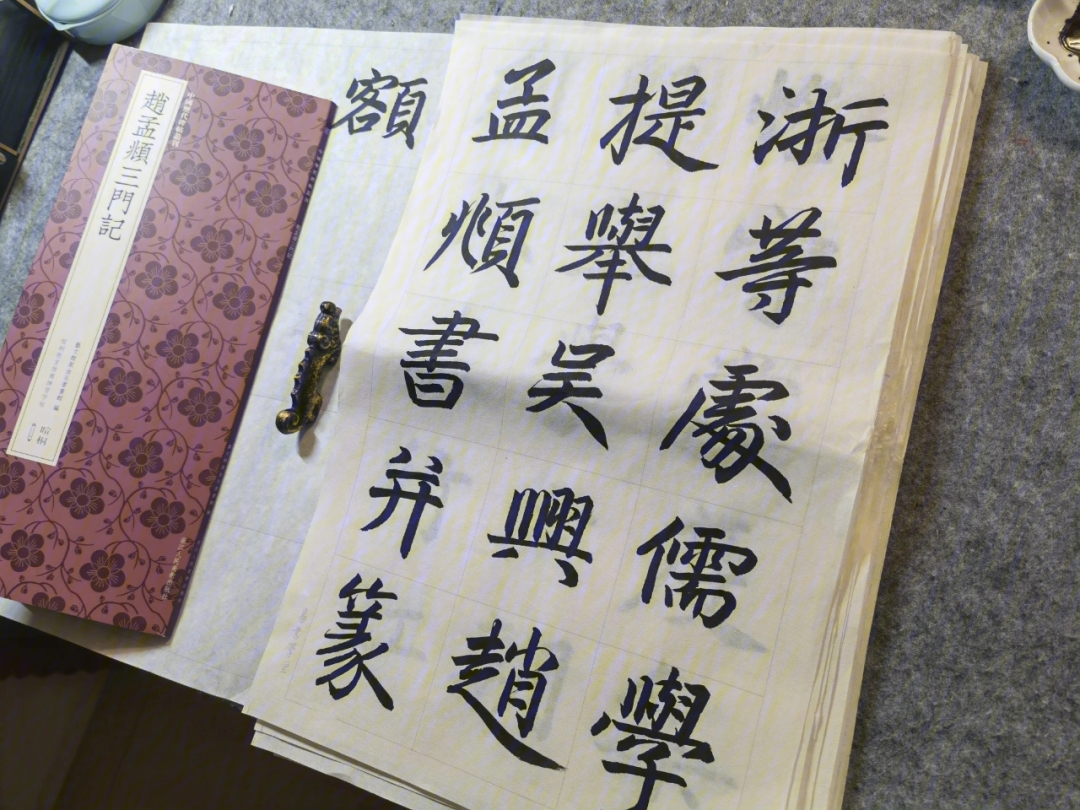 浙等處儒學
提舉吴興趙
孟頫書并篆
額
趙孟頫三門記